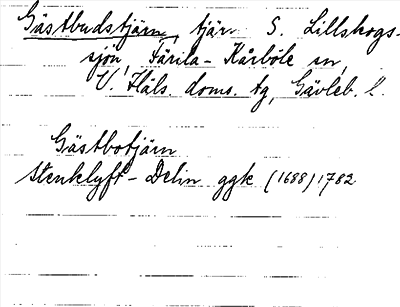 Gästbudstjärn, tjär S. Lillskogs-
sjön, Färila-Kårböle sn,
V. Häls. doms. tg, Gävleb. l.
Gästbotjärn
Stenklyft - Delin ggk (1688) 1782